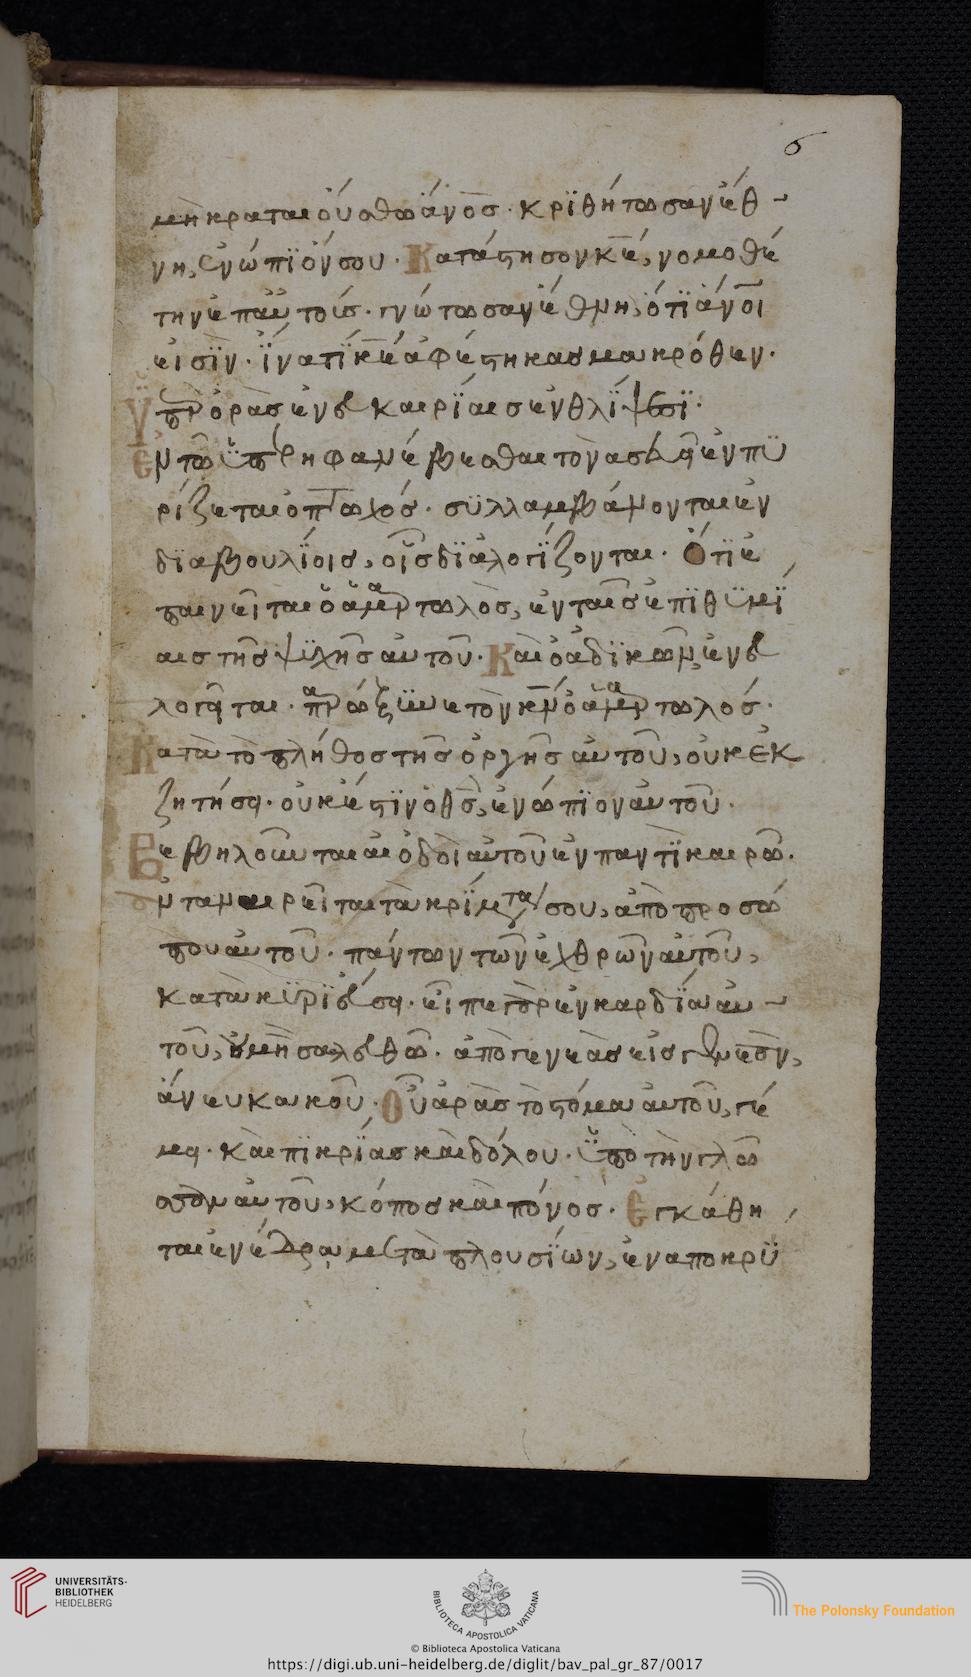 6
μὴ κραταιούσθω ἄνος· κρϊθήτωσαν ἔθ
νη, ἐνώπϊόν σου· Κατάστησον κε, νομοθέ
την ἐπ αὐτοῖς· γνώτωσαν ἔθνη, ὅτϊ ἄνοι
εἰσϊν· ἵνατϊ κε ἀφέστηκας μακρόθεν·
ὑπερορᾶς ἐν εὐκαιρίαις ἐν θλίψεσϊ·
Ἐν τῶ ὑπερηφανέβεσθαι τὸν ἀσεβῆ ἐνπϋ
ρίζεται ὁ πτωχός· συλλαμβάνονται ἐν
δϊαβουλίοις, οἷς δϊαλογίζονται· Ὅτϊ ἐ
παινεῖται ὁ ἁμαρτωλὸς, ἐν ταῖς ἐπϊθϋμϊ
αις τῆς ψϋχῆς αὐτοῦ· Καὶ ὁ ἀδϊκῶν, ἐνευ
λογῆται· παρώξϋνε τὸν κν ὁ ἁμαρτωλός·
Κατὰ τὸ πλῆθος τῆς ὀργῆς αὐτοῦ, οὐκ ἐκ
ζητήσει· οὐκ ἔστϊν ὁ θς, ἐνώπϊον αὐτοῦ·
Βεβηλοῦνται αἱ ὁδοὶ αὐτοῦ ἐν παντϊ καιρῶ·
ἀνταναιρεῖται τὰ κρίματά σου, ἀπὸ προσώ
που αὐτοῦ· πάντων τῶν ἐχθρῶν αὐτοῦ,
κατακϋρϊεύσει· εἶπε γὰρ ἐν καρδία αὐ
τοῦ, οὐ μὴ σαλευθῶ· ἀπὸ γενεὰς εἰς γενεὰν,
ἄνευ κακοῦ· Οὗ ἀρᾶς τὸ στόμα αὐτοῦ, γέ
μει· καὶ πϊκρίας καὶ δόλου· ὑπὸ τὴν γλῶ
σσαν αὐτοῦ, κόπος καὶ πόνος· Ἐγκάθη
ται ἐνέδρα μετὰ πλουσίων, ἐν αποκρϋ
UNIVERSITÄTS-
BIBLIOTHEK
HEIDELBERG
BIBLIOTECA APOSTOLICA VATICANA
The Polonsky Foundation
© Biblioteca Apostolica Vaticana
https://digi.ub.uni-heidelberg.de/diglit/bav_pal_gr_87/0017